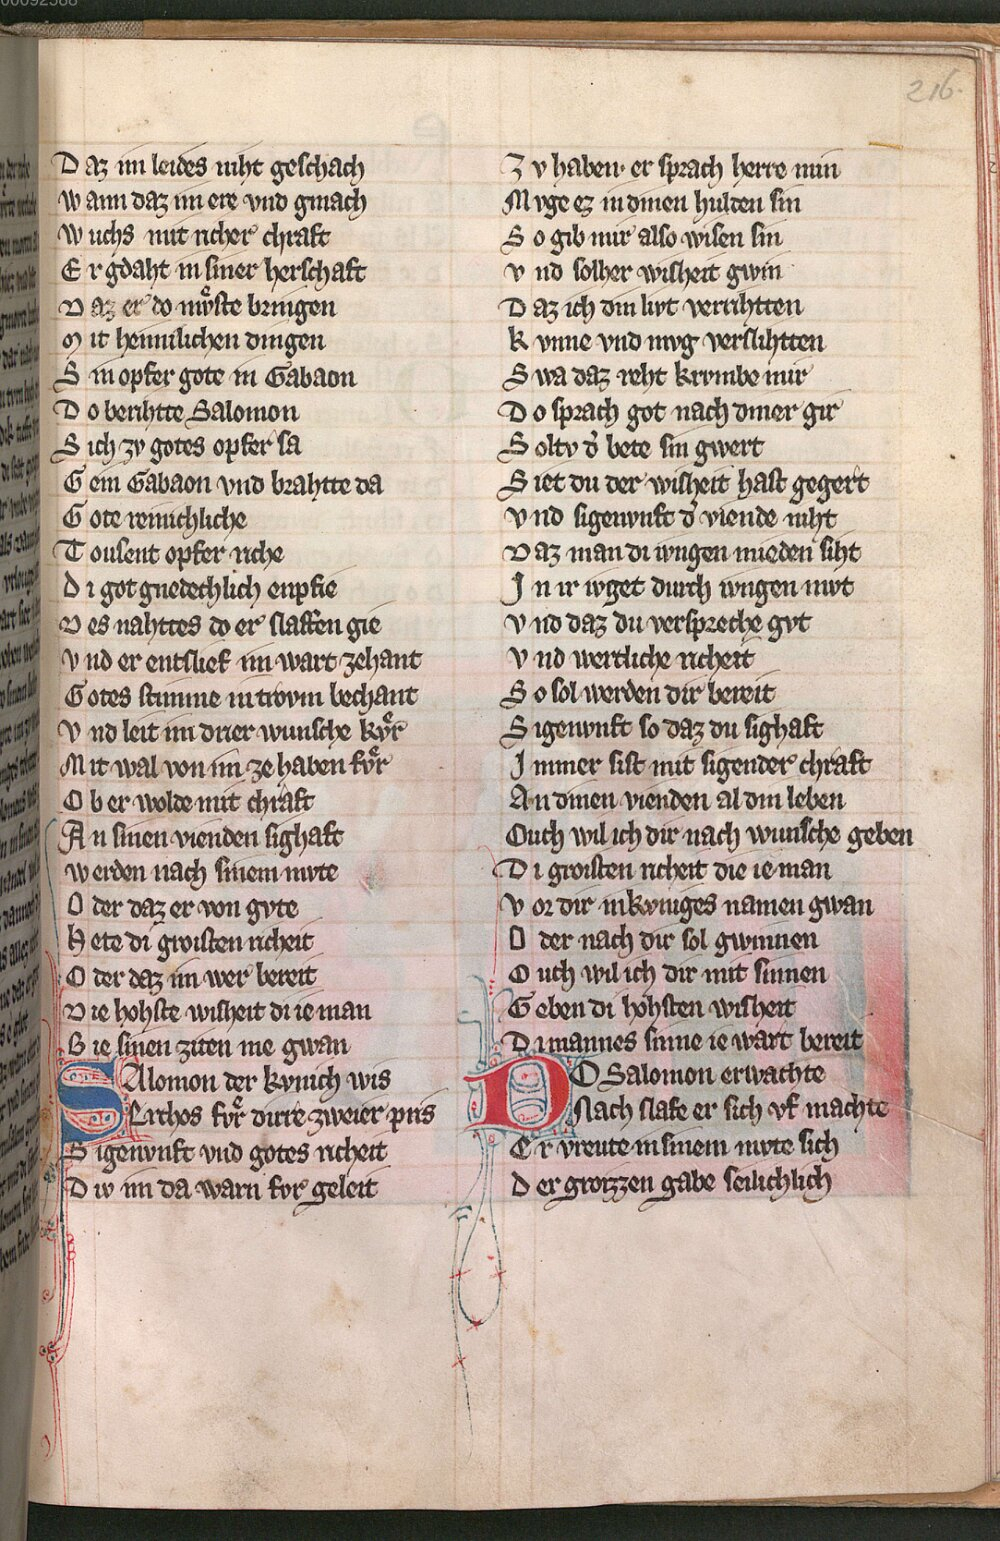 00092588
216.
Daz im leides niht geschach
Wann daz im ere vnd gmach
Wuchs mit richer chraft
Er gdaht in siner herschaft
Daz er do mvͦste bringen
Mit heimlichen dingen
Sin opfer gote in Gabaon
Do berihtte Salomon
Sich zv gotes opfer sa
Gein Gabaon vnd brahtte da
Gote reinichliche
Tousent opfer riche
Di got gnedechlich enpfie
Des nahttes do er slaffen gie
Vnd er entslief im wart zehant
Gotes stimme in trovm bechant
Vnd leit im drier wunsche kvͤr
Mit wal von im ze haben fvͤr
Ob er wolde mit chraft
An sinen vienden sighaft
Werden nach sinem mvte
Oder daz er von gvte
Hete di groisten richeit
Oder daz im wer bereit
Die hohste wisheit di ie man
Bie sinen ziten me gwan
Salomon der kvnich wis
Erchos fvͤr dirre zweier pris
Sigenvnft vnd gotes richeit
Div im da warn fvr geleit
Zv haben· er sprach herre min
Mvge ez in dinen hulden sin
So gib mir also wisen sin
Vnd solher wisheit gwin
Daz ich din livt verrihtten
Kvnne vnd mvg verslihtten
Swa daz reht krvmbe mir
Do sprach got nach diner gir
Soltv dˀ bete sin gwert
Siet du der wisheit hast gegert
Vnd sigenvnft dˀ viende niht
Daz man di ivngen mieden siht
In ir ivget durch ivngen mvt
Vnd daz du verspreche gvt
Vnd wertliche richeit
So sol werden dir bereit
Sigenvnft so daz du sighaft
Immer sist mit sigender chraft
An dinen vienden al din leben
Ouch wil ich dir nach wunsche geben
Di groisten richeit die ie man
Vor dir in kvniges namen gwan
Oder nach dir sol gwinnen
Ouch wil ich dir mit sinnen
Geben di hohsten wisheit
Di mannes sinne ie wart bereit
DO Salomon erwachte
Nach slafe er sich vf machte
Er vreute in sinem mvte sich
Der groizzen gabe seilichlich